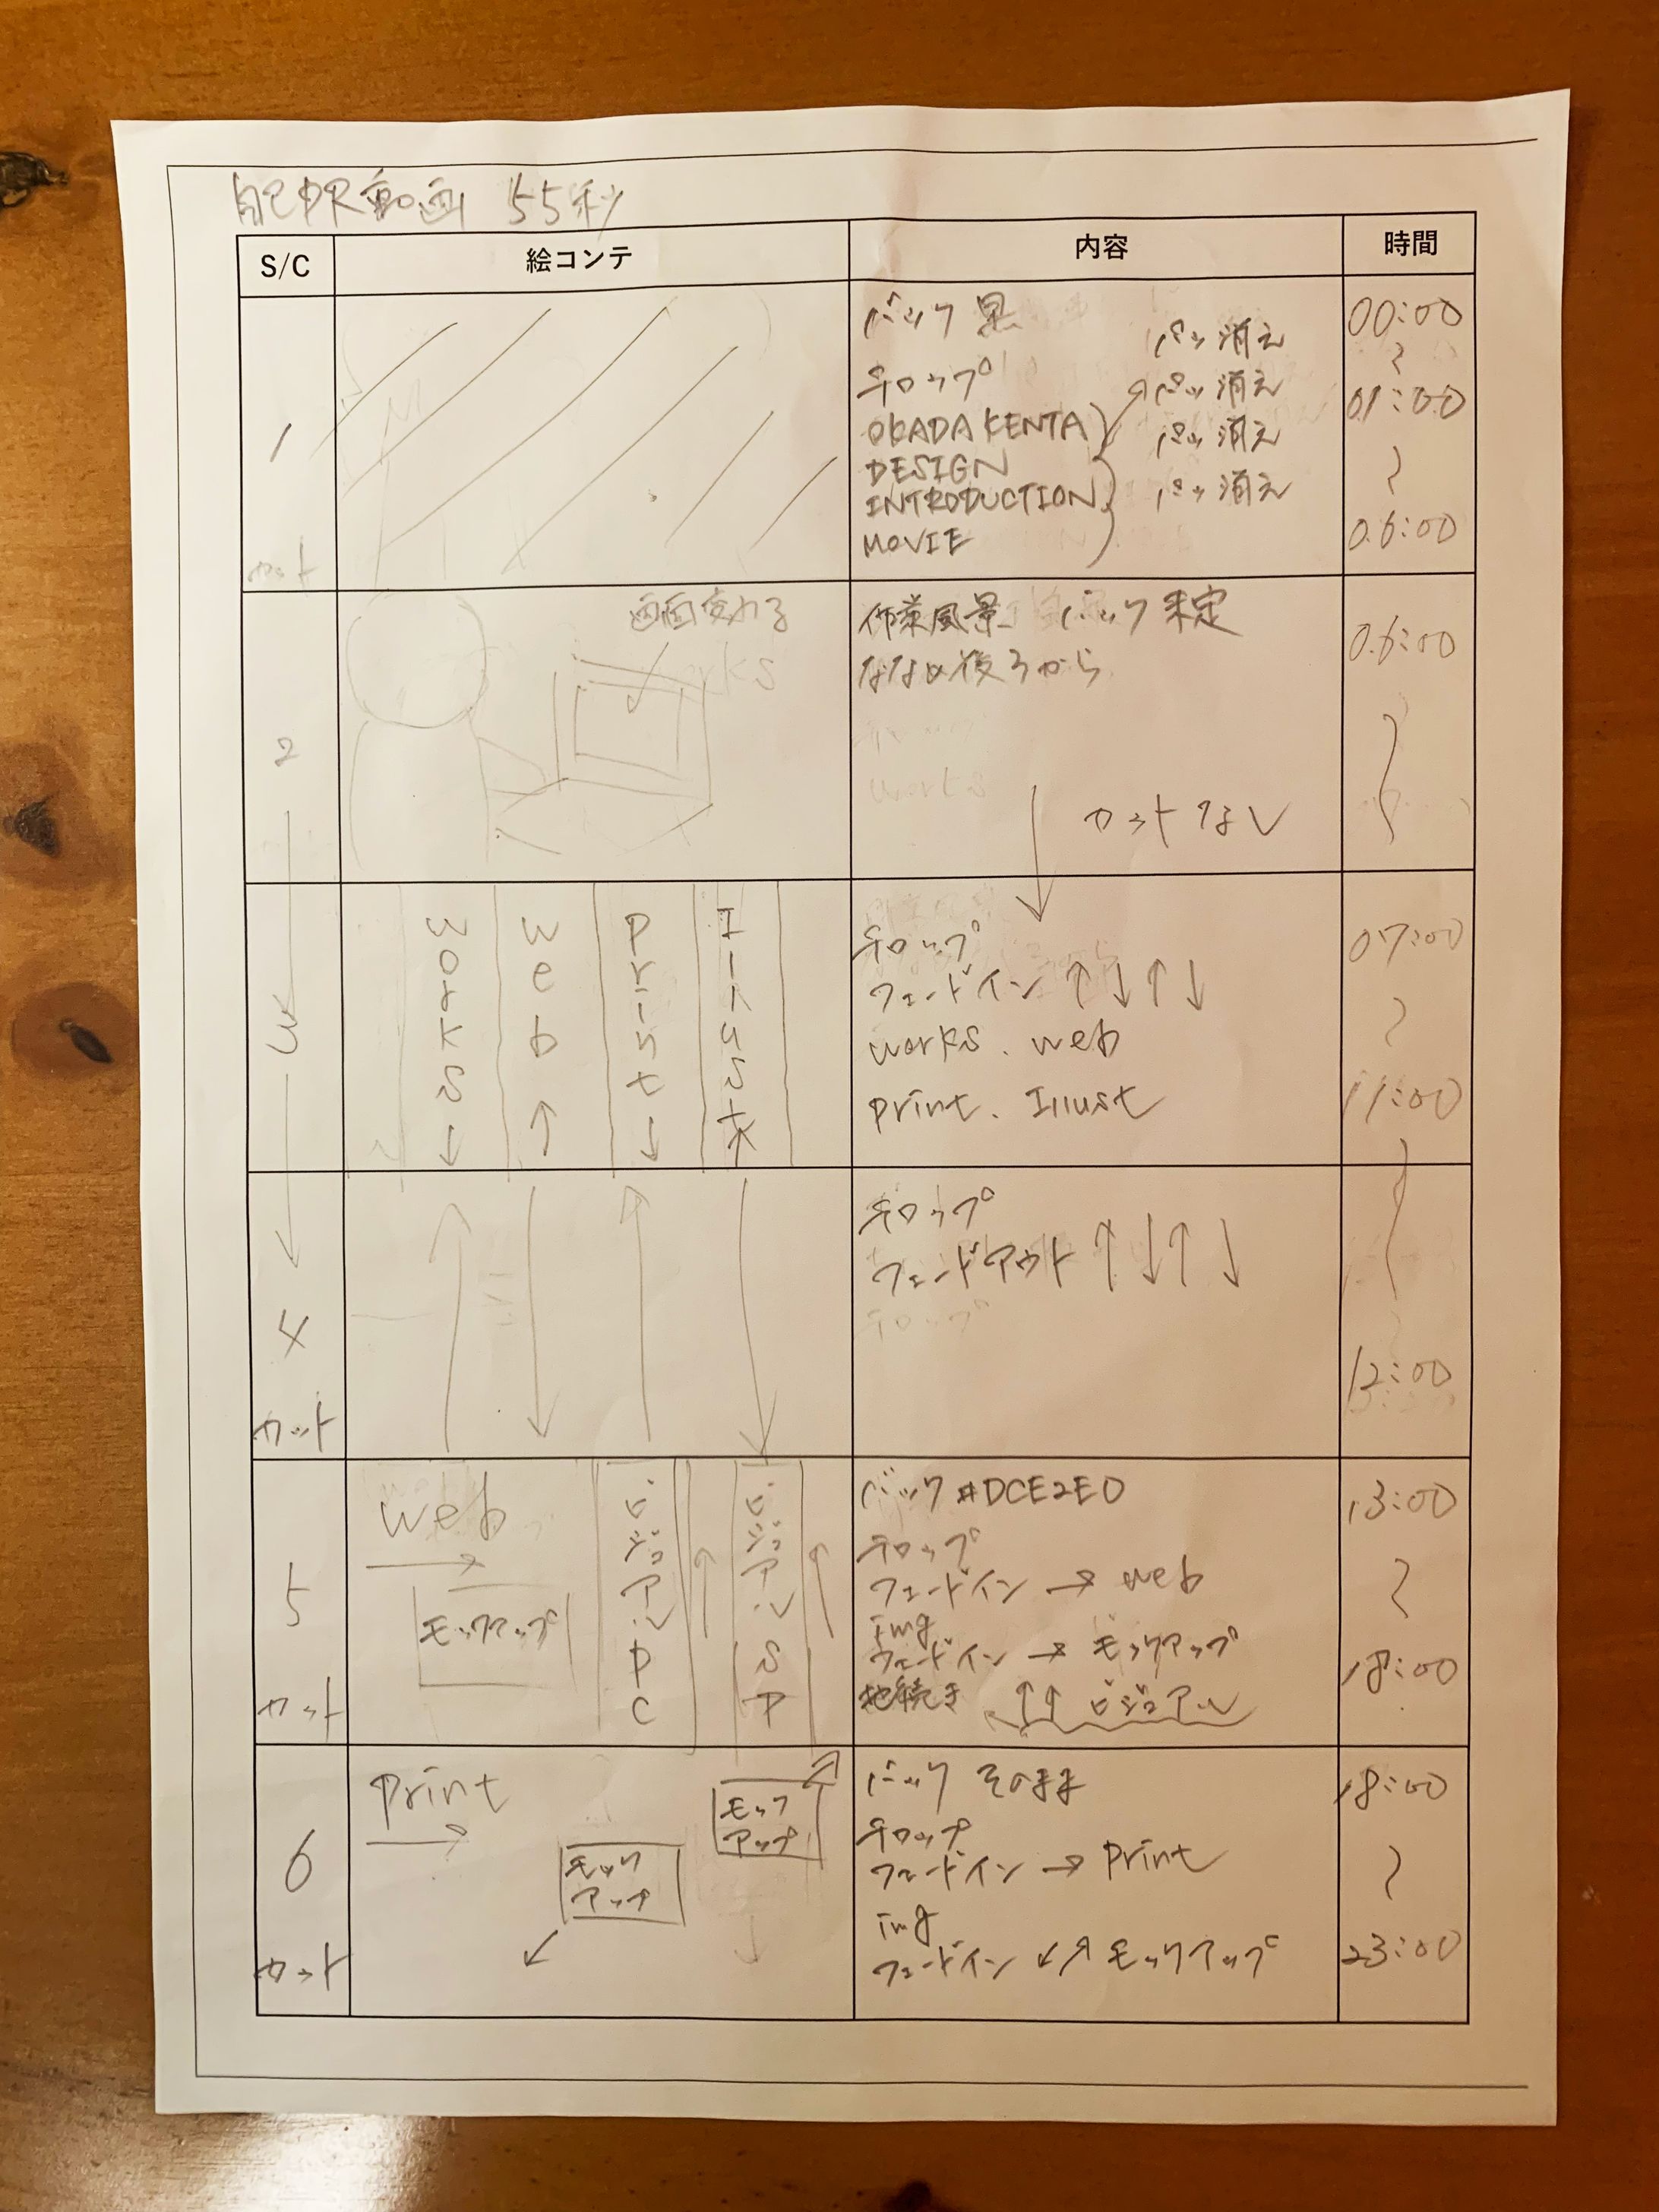 自己PR動画 55秒
S/C 絵コンテ 内容 時間
1
カット
バック 黒
テロップ
OKADA KENTA
DESIGN
INTRODUCTION
MOVIE
パッ 消え
パッ 消え
パッ 消え
パッ 消え
00:00
〜
01:00
〜
06:00
2
画面変わる
works
作業風景 バック 未定
ななめ後ろから
works
カットなし
06:00
〜
3
works ↓
web ↑
print ↓
Illust
テロップ
フェードイン ↑↓↑↓
works. web
print. Illust
07:00
〜
11:00
4
カット
テロップ
フェードアウト ↑↓↑↓
テロップ
〜
12:00
5
カット
web
モックアップ
ビジュアルPC
ビジュアルSP
バック #DCE2E0
テロップ
フェードイン → web
img
フェードイン → モックアップ
↑↑ ビジュアル
13:00
〜
18:00
6
カット
print
モック
アップ
モック
アップ
バック そのまま
テロップ
フェードイン → print
img
フェードイン ↙↗ モックアップ
18:00
〜
23:00